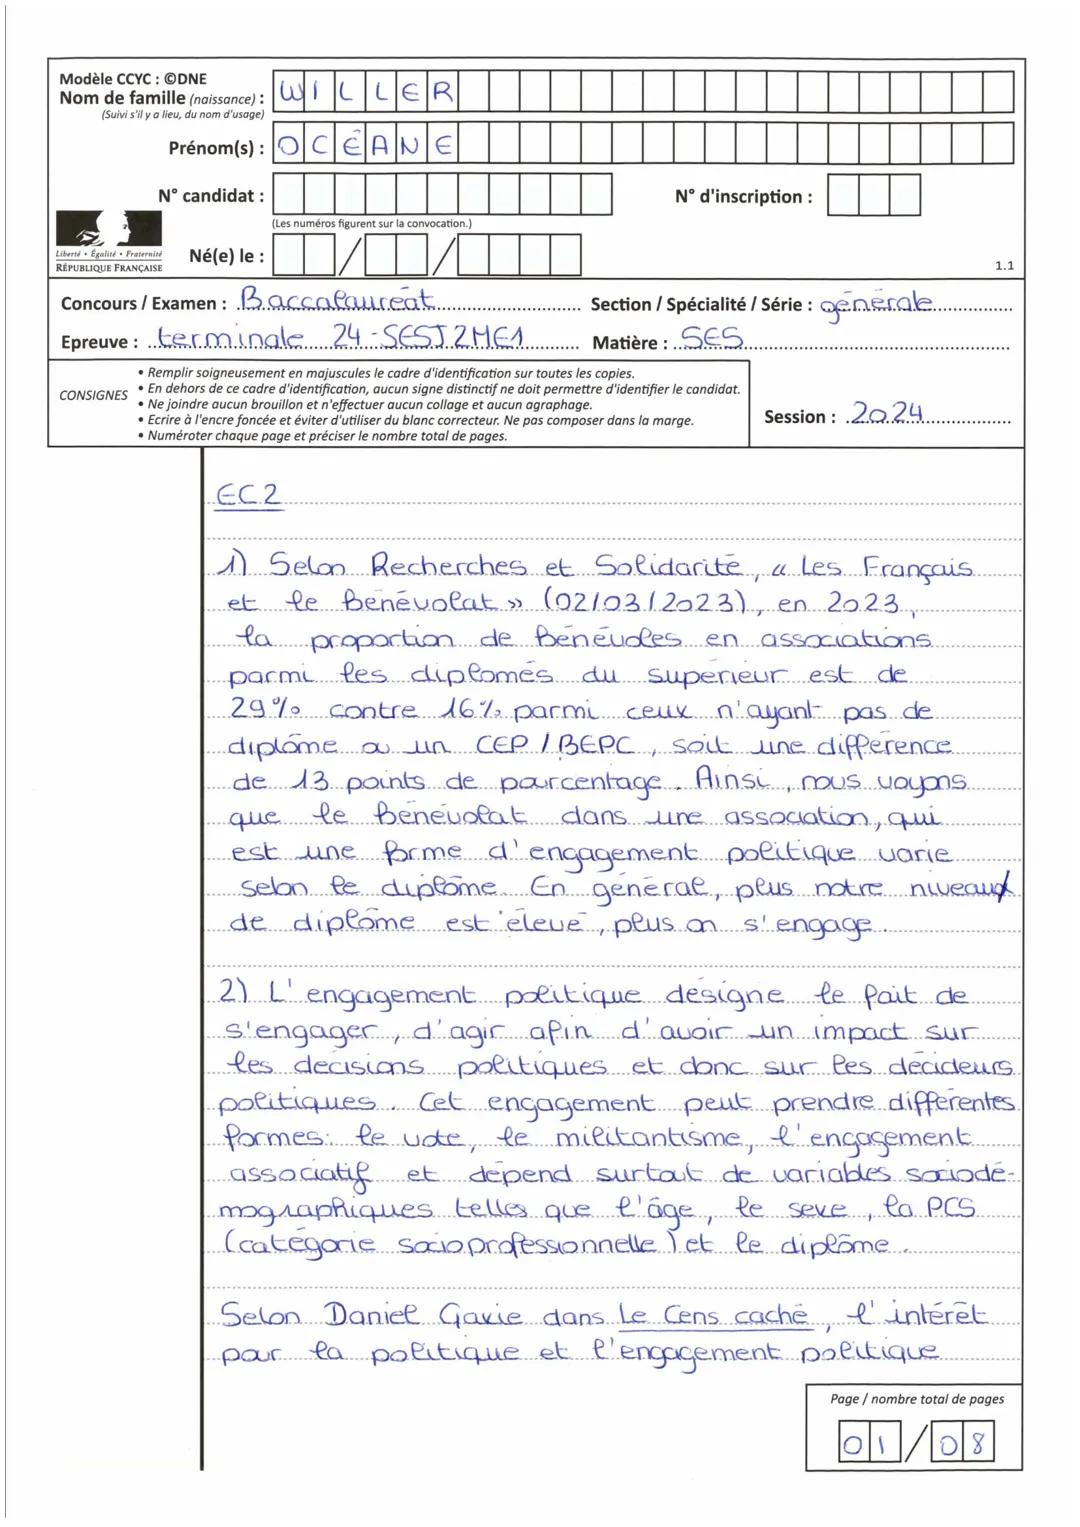 Modèle CCYC : ©DNE
Nom de famille (naissance) : WILLER
(Suivi s'il y a lieu, du nom d'usage)
Prénom(s) : OCÉANE
N° candidat :
N° d'inscription :
(Les numéros figurent sur la convocation.)
Né(e) le : / /
Liberté • Égalité • Fraternité
RÉPUBLIQUE FRANÇAISE
1.1
Concours / Examen : Baccalauréat Section / Spécialité / Série : générale
Epreuve : terminale 24-SESJ2ME1 Matière : SES
CONSIGNES
• Remplir soigneusement en majuscules le cadre d'identification sur toutes les copies.
• En dehors de ce cadre d'identification, aucun signe distinctif ne doit permettre d'identifier le candidat.
• Ne joindre aucun brouillon et n'effectuer aucun collage et aucun agraphage.
• Ecrire à l'encre foncée et éviter d'utiliser du blanc correcteur. Ne pas composer dans la marge.
• Numéroter chaque page et préciser le nombre total de pages.
Session : 2024
EC2
1) Selon Recherches et Solidarité, « Les Français
et le bénévolat » (02/03/2023), en 2023,
la proportion de bénévoles en associations
parmi les diplômés du supérieur est de
29% contre 16% parmi ceux n'ayant pas de
diplôme ou un CEP / BEPC, soit une différence
de 13 points de pourcentage. Ainsi, nous voyons
que le bénévolat dans une association, qui
est une forme d'engagement politique varie
selon le diplôme. En général, plus notre niveau
de diplôme est élevé, plus on s'engage.
2) L'engagement politique désigne le fait de
s'engager, d'agir afin d'avoir un impact sur
les décisions politiques et donc sur les décideurs
politiques. Cet engagement peut prendre différentes
formes: le vote, le militantisme, l'engagement
associatif et dépend surtout de variables sociodé-
mographiques telles que l'âge, le sexe, la PCS
(catégorie socioprofessionnelle) et le diplôme.
Selon Daniel Gaxie dans Le Cens caché, l'intérêt
pour la politique et l'engagement politique
Page / nombre total de pages
01 / 08